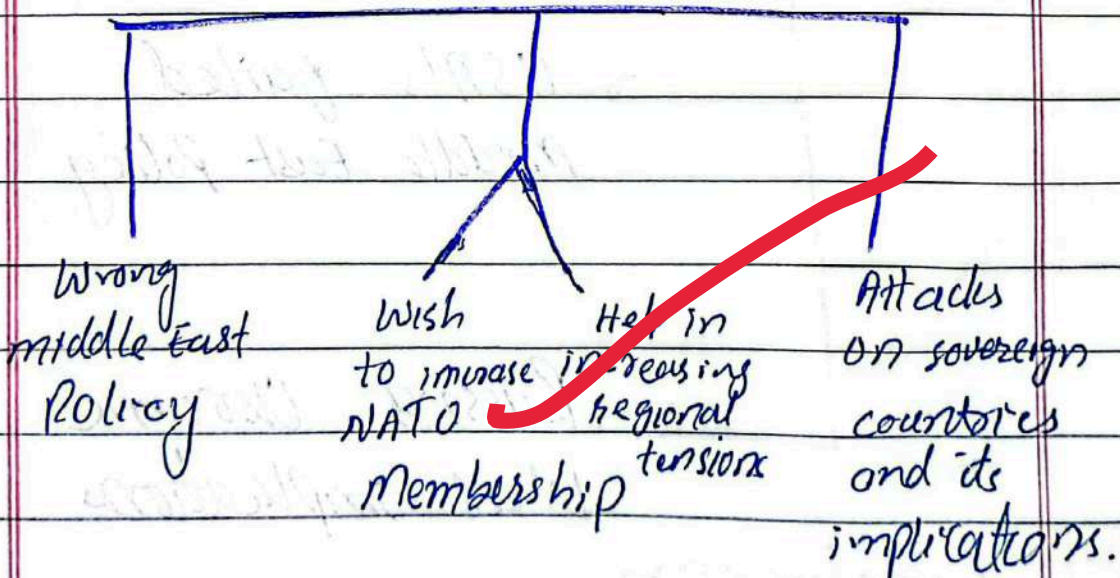 Wrong
middle East
Policy
Wish
to increase
NATO
Membership
Help in
increasing
regional
tensions
Attacks
on sovereign
countries
and its
implications.